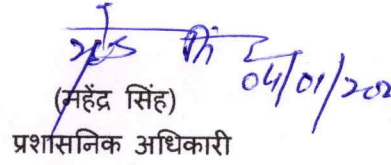 04/01/202
(महेंद्र सिंह)
प्रशासनिक अधिकारी